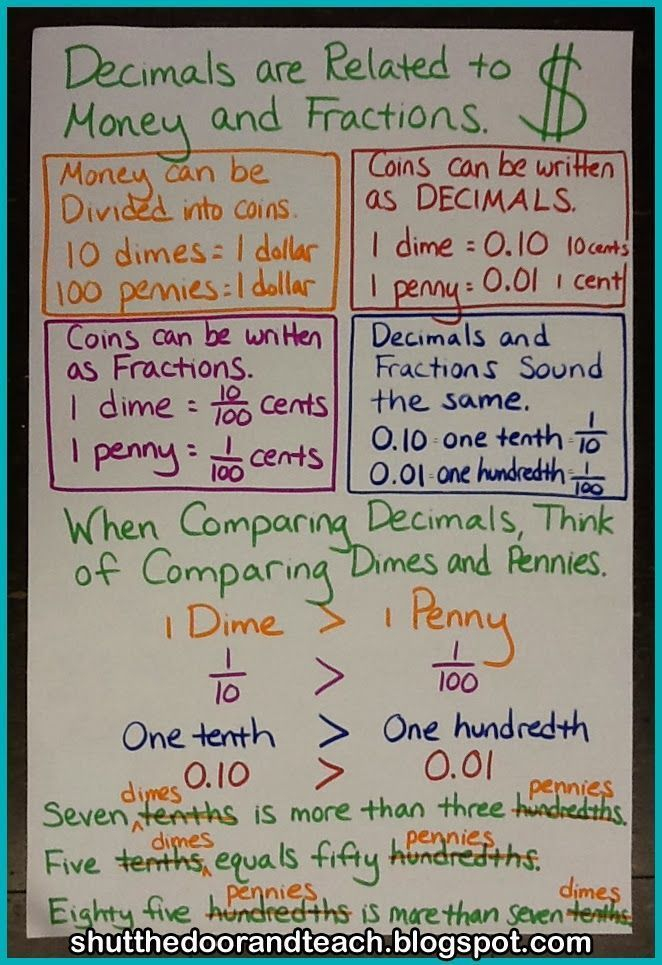 Decimals are Related to $
Money and Fractions.
Money can be
Divided into coins.
10 dimes = 1 dollar
100 pennies = 1 dollar
Coins can be written
as DECIMALS.
1 dime = 0.10 10 cents
1 penny = 0.01 1 cent
Coins can be written
as Fractions.
1 dime = 10/100 cents
1 penny = 1/100 cents
Decimals and
Fractions Sound
the same.
0.10 = one tenth = 1/10
0.01 = one hundredth = 1/100
When Comparing Decimals, Think
of Comparing Dimes and Pennies.
1 Dime > 1 Penny
1/10 > 1/100
One tenth > One hundredth
0.10 > 0.01
dimes pennies
Seven tenths is more than three hundredths.
dimes pennies
Five tenths equals fifty hundredths.
pennies dimes
Eighty five hundredths is more than seven tenths.
shutthedoorandteach.blogspot.com